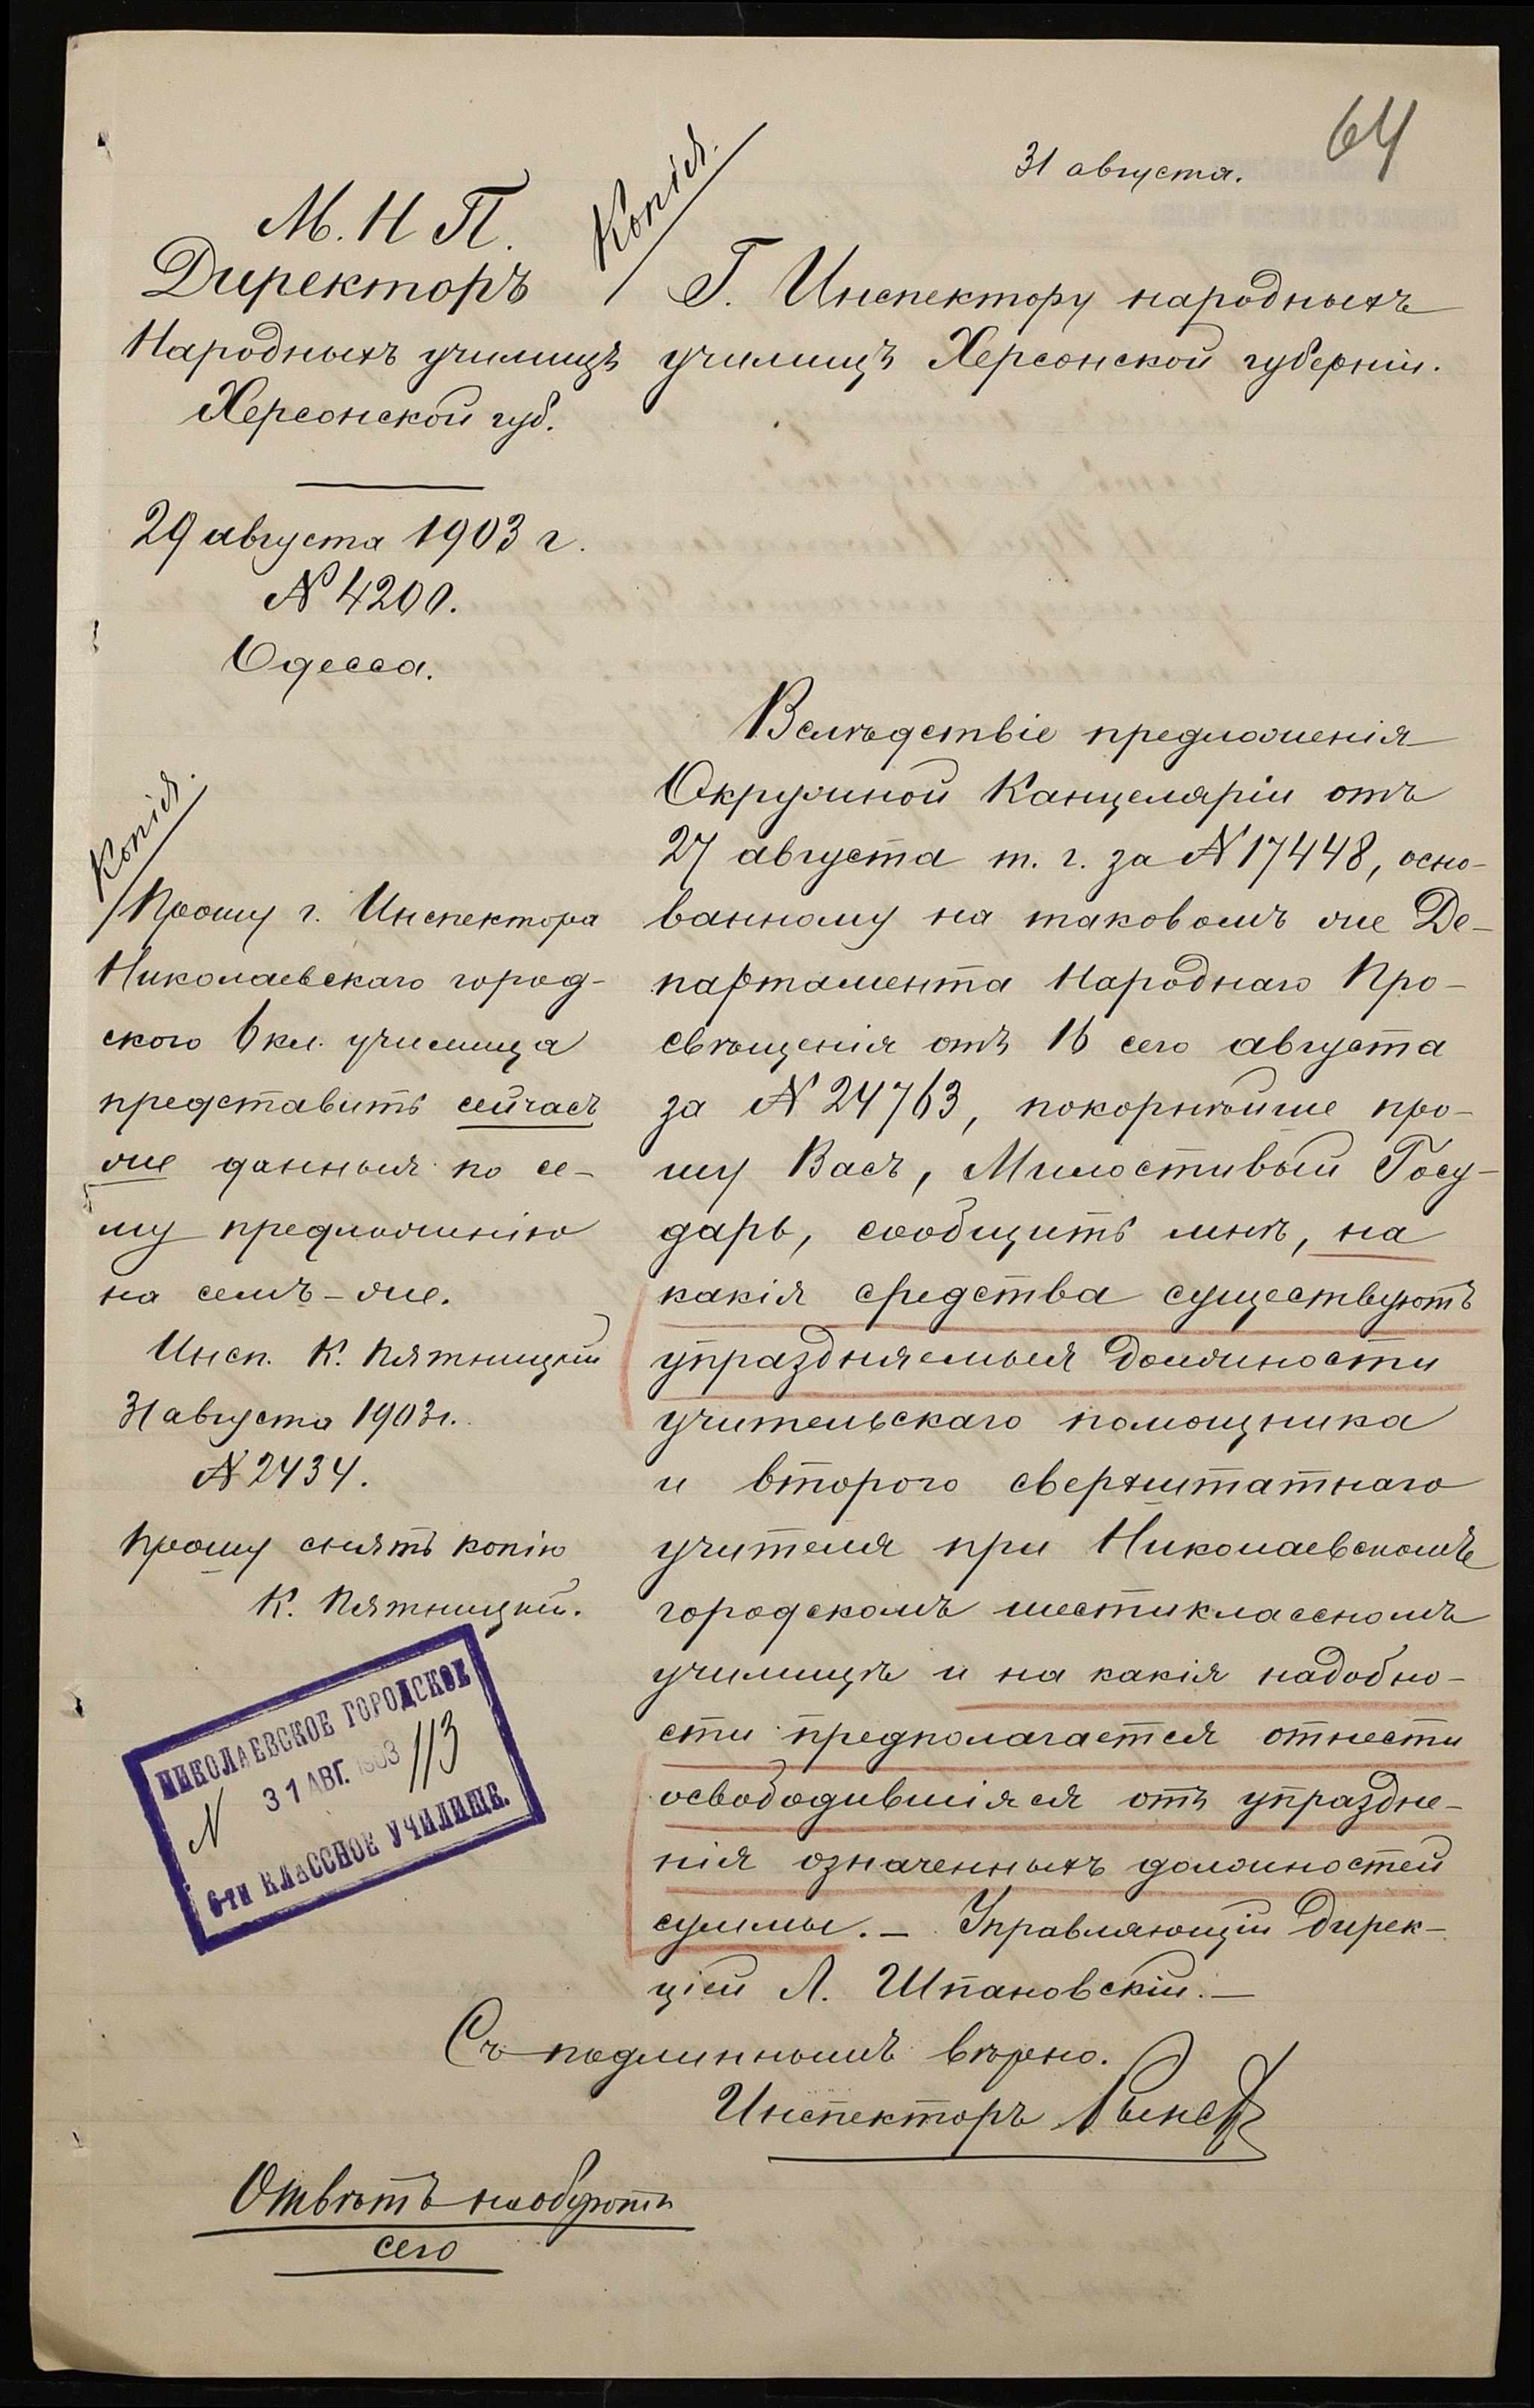 64
31 августа.
М. Н. П.
Директоръ
Народныхъ училищъ
Херсонской губ.
29 августа 1903 г.
№ 4200.
Одесса.
Копія.
Г. Инспектору народныхъ
училищъ Херсонской губерніи.
Вслѣдствіе предложенія
Окружной Канцеляріи отъ
27 августа т. г. за № 17448, осно-
ванному на таковомъ же Де-
партамента Народнаго Про-
свѣщенія отъ 16 сего августа
за № 24763, покорнѣйше про-
шу Васъ, Милостивый Госу-
дарь, сообщить мнѣ, на
какія средства существуютъ
упраздняемыя должности
учительскаго помощника
и второго сверхштатнаго
учителя при Николаевскомъ
городскомъ шестиклассномъ
училищѣ и на какія надобно-
сти предполагается отнести
освободившіяся отъ упраздне-
нія означенныхъ должностей
суммы. — Управляющій Дирек-
ціей Л. Шпановскій. —
Съ подлиннымъ вѣрно.
Инспекторъ
Копія.
Прошу г. Инспектора
Николаевскаго город-
ского 6 кл. училища
представить сейчасъ
же данныя по се-
му предложенію
на семъ-же.
Инсп. К. Пятницкій
31 августа 1903 г.
№ 2434.
Прошу снять копію
К. Пятницкій.
НИКОЛАЕВСКОЕ ГОРОДСКОЕ
31 АВГ. 1903
N 113
6-ти КЛАССНОЕ УЧИЛИЩЕ.
Отвѣтъ на оборотѣ
сего